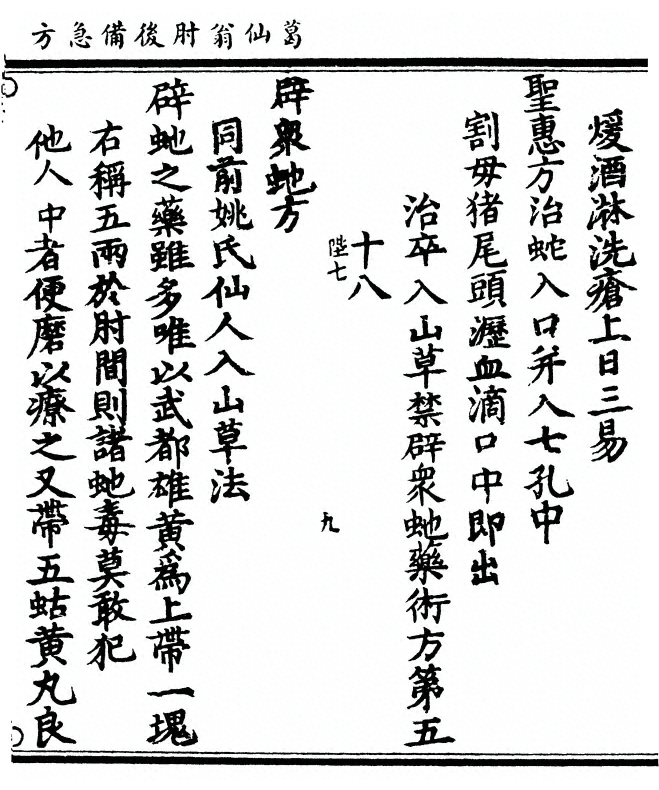 葛仙翁肘後備急方
煖酒淋洗瘡上日三易
聖惠方治蛇入口并入七孔中
割母猪尾頭瀝血滴口中即出
治卒入山草禁辟衆虵藥術方第五
十八
陞七
九
辟衆虵方
同前姚氏仙人入山草法
辟虵之藥雖多唯以武都雄黄爲上帶一塊
右稱五兩於肘間則諸虵毒莫敢犯
他人中者便磨以療之又帶五蛄黄丸良